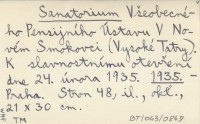 Sanatorium Všeobecné-
ho Pensijního Ústavu V No-
vém Smokovci (Vysoké Tatry).
K slavnostnímu otevření
dne 24. února 1935. 1935. -
Praha. Stron 48, il., obl.,
21 x 30 cm.
TM BT/043/0868